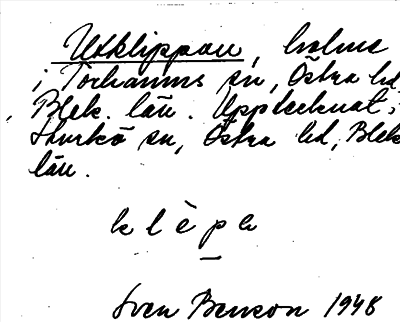 Utklippan, holme
i Torhamns sn, Östra hd,
Blek. län. Upptecknat i
Sturkö sn, Östra hd, Blek
län.
klèpa
Sven Benson 1948